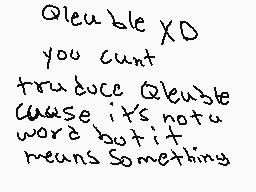 Qleuble XD
you cunt
truduce Qleuble
cause it's not a
word but it
means something